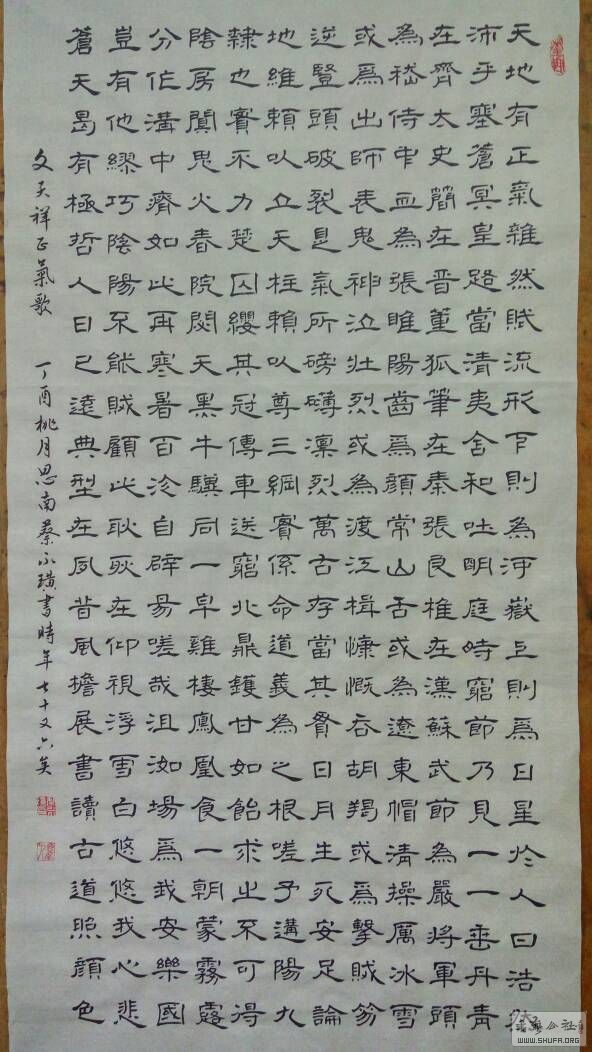 天地有正氣雜然賦流形下則為河嶽上則為日星於人曰浩然
沛乎塞蒼冥皇路當清夷含和吐明庭時窮節乃見一一垂丹青
在齊太史簡在晉董狐筆在秦張良椎在漢蘇武節為嚴將軍頭
為嵇侍中血為張睢陽齒為顏常山舌或為遼東帽清操厲冰雪
或爲出師表鬼神泣壯烈或為渡江楫慷慨吞胡羯或爲擊賊笏
逆豎頭破裂是氣所磅礴凜烈萬古存當其貫日月生死安足論
地維賴以立天柱賴以尊三綱實係命道義為之根嗟予遘陽九
隸也實不力楚囚纓其冠傳車送窮北鼎鑊甘如飴求之不可得
陰房闃鬼火春院閟天黑牛驥同一皁雞棲鳳凰食一朝蒙霧露
分作溝中瘠如此再寒暑百沴自辟易嗟哉沮洳場爲我安樂國
豈有他繆巧陰陽不能賊顧此耿耿在仰視浮雲白悠悠我心悲
蒼天曷有極哲人日已遠典型在夙昔風檐展書讀古道照顏色
文天祥正氣歌 丁酉桃月思南蔡永璜書時年七十又六矣
WWW.SHUFA.ORG